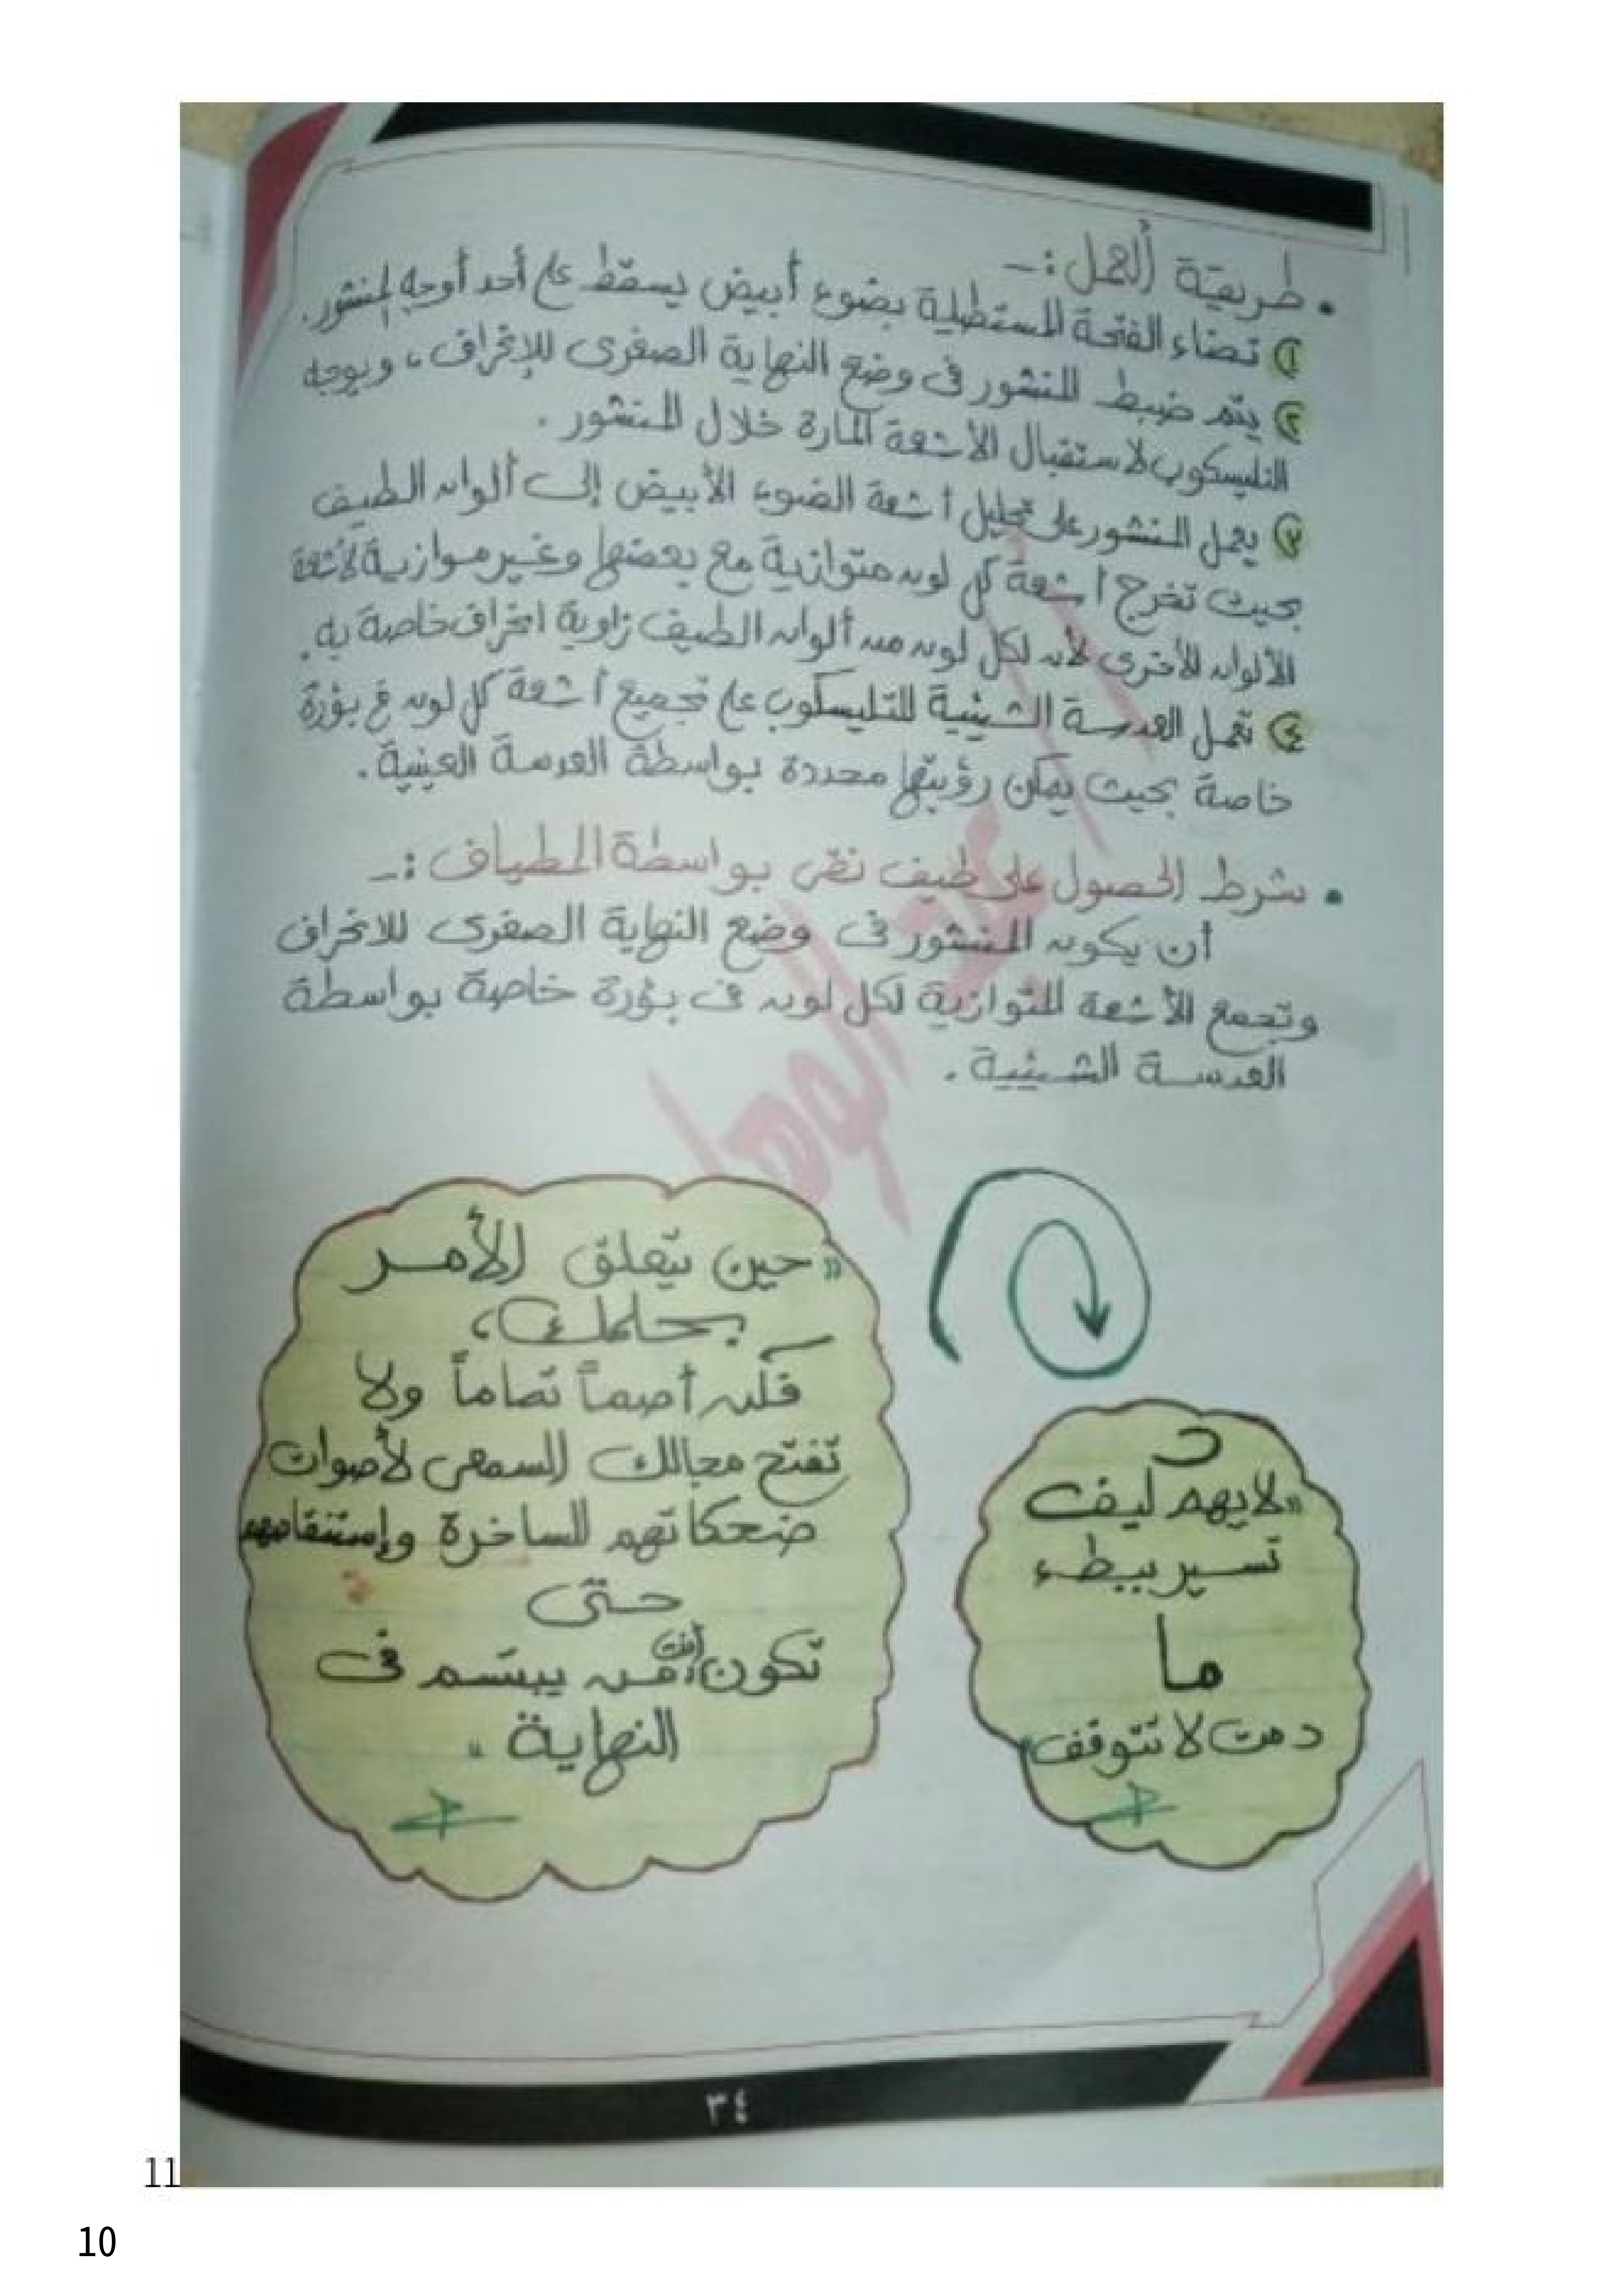 • طريقة العمل :-
① تضاء الفتحة المستطيلة بضوء أبيض يسقط على أحد أوجه المنشور.
② يتم ضبط المنشور فى وضع النهاية الصغرى للإنحراف، ويوجه
التليسكوب لاستقبال الأشعة المارة خلال المنشور.
③ يعمل المنشور على تحليل أشعة الضوء الأبيض إلى ألوان الطيف
بحيث تخرج أشعة كل لون متوازية مع بعضها وغير موازية لأشعة
الألوان الأخرى لأن لكل لون من ألوان الطيف زاوية انحراف خاصة به.
④ تعمل العدسة الشيئية للتليسكوب على تجميع أشعة كل لون فى بؤرة
خاصة بحيث يمكن رؤيتها محددة بواسطة العدسة العينية.
• شرط الحصول على طيف نقى بواسطة المطياف :-
أن يكون المنشور فى وضع النهاية الصغرى للانحراف
وتجمع الأشعة المتوازية لكل لون فى بؤرة خاصة بواسطة
العدسة الشيئية.
«حين يتعلق الأمر
بحلمك،
فكن أصماً تماماً ولا
تفتح مجالك السمعى لأصوات
ضحكاتهم الساخرة وإستنقاصهم
حتى
تكون أنت من يبتسم فى
النهاية»
«لا يهم كيف
تسير ببطء
ما
دمت لا تتوقف»
٣٤
11
10